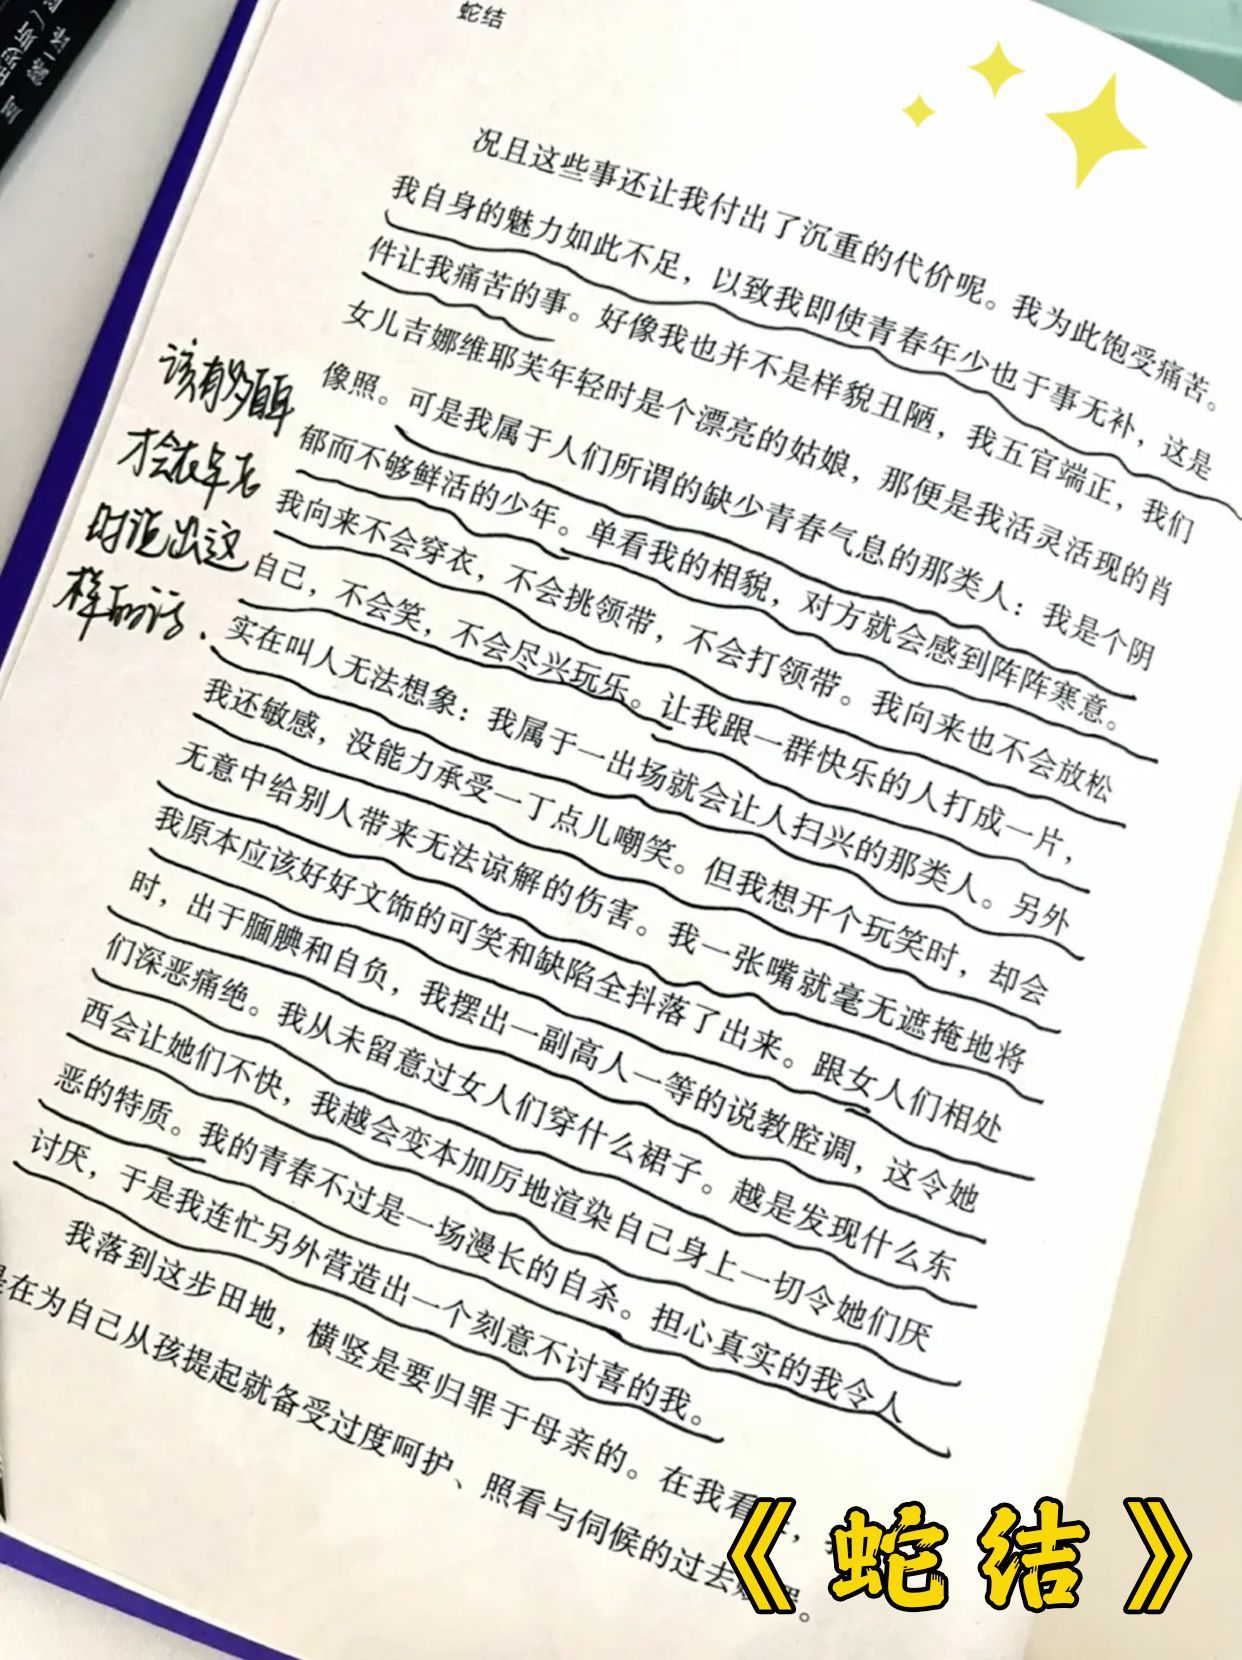 蛇结
况且这些事还让我付出了沉重的代价呢。我为此饱受痛苦。
我自身的魅力如此不足，以致我即使青春年少也于事无补，这是
件让我痛苦的事。好像我也并不是样貌丑陋，我五官端正，我们
女儿吉娜维耶芙年轻时是个漂亮的姑娘，那便是我活灵活现的肖
像照。可是我属于人们所谓的缺少青春气息的那类人：我是个阴
郁而不够鲜活的少年。单看我的相貌，对方就会感到阵阵寒意。
我向来不会穿衣，不会挑领带，不会打领带。我向来也不会放松
自己，不会笑，不会尽兴玩乐。让我跟一群快乐的人打成一片，
实在叫人无法想象：我属于一出场就会让人扫兴的那类人。另外
我还敏感，没能力承受一丁点儿嘲笑。但我想开个玩笑时，却会
无意中给别人带来无法谅解的伤害。我一张嘴就毫无遮掩地将
我原本应该好好文饰的可笑和缺陷全抖落了出来。跟女人们相处
时，出于腼腆和自负，我摆出一副高人一等的说教腔调，这令她
们深恶痛绝。我从未留意过女人们穿什么裙子。越是发现什么东
西会让她们不快，我越会变本加厉地渲染自己身上一切令她们厌
恶的特质。我的青春不过是一场漫长的自杀。担心真实的我令人
讨厌，于是我连忙另外营造出一个刻意不讨喜的我。
我落到这步田地，横竖是要归罪于母亲的。在我看
在为自己从孩提起就备受过度呵护、照看与伺候的过去
该有多自卑
才会在年老
时说出这
样的话.
《蛇结》